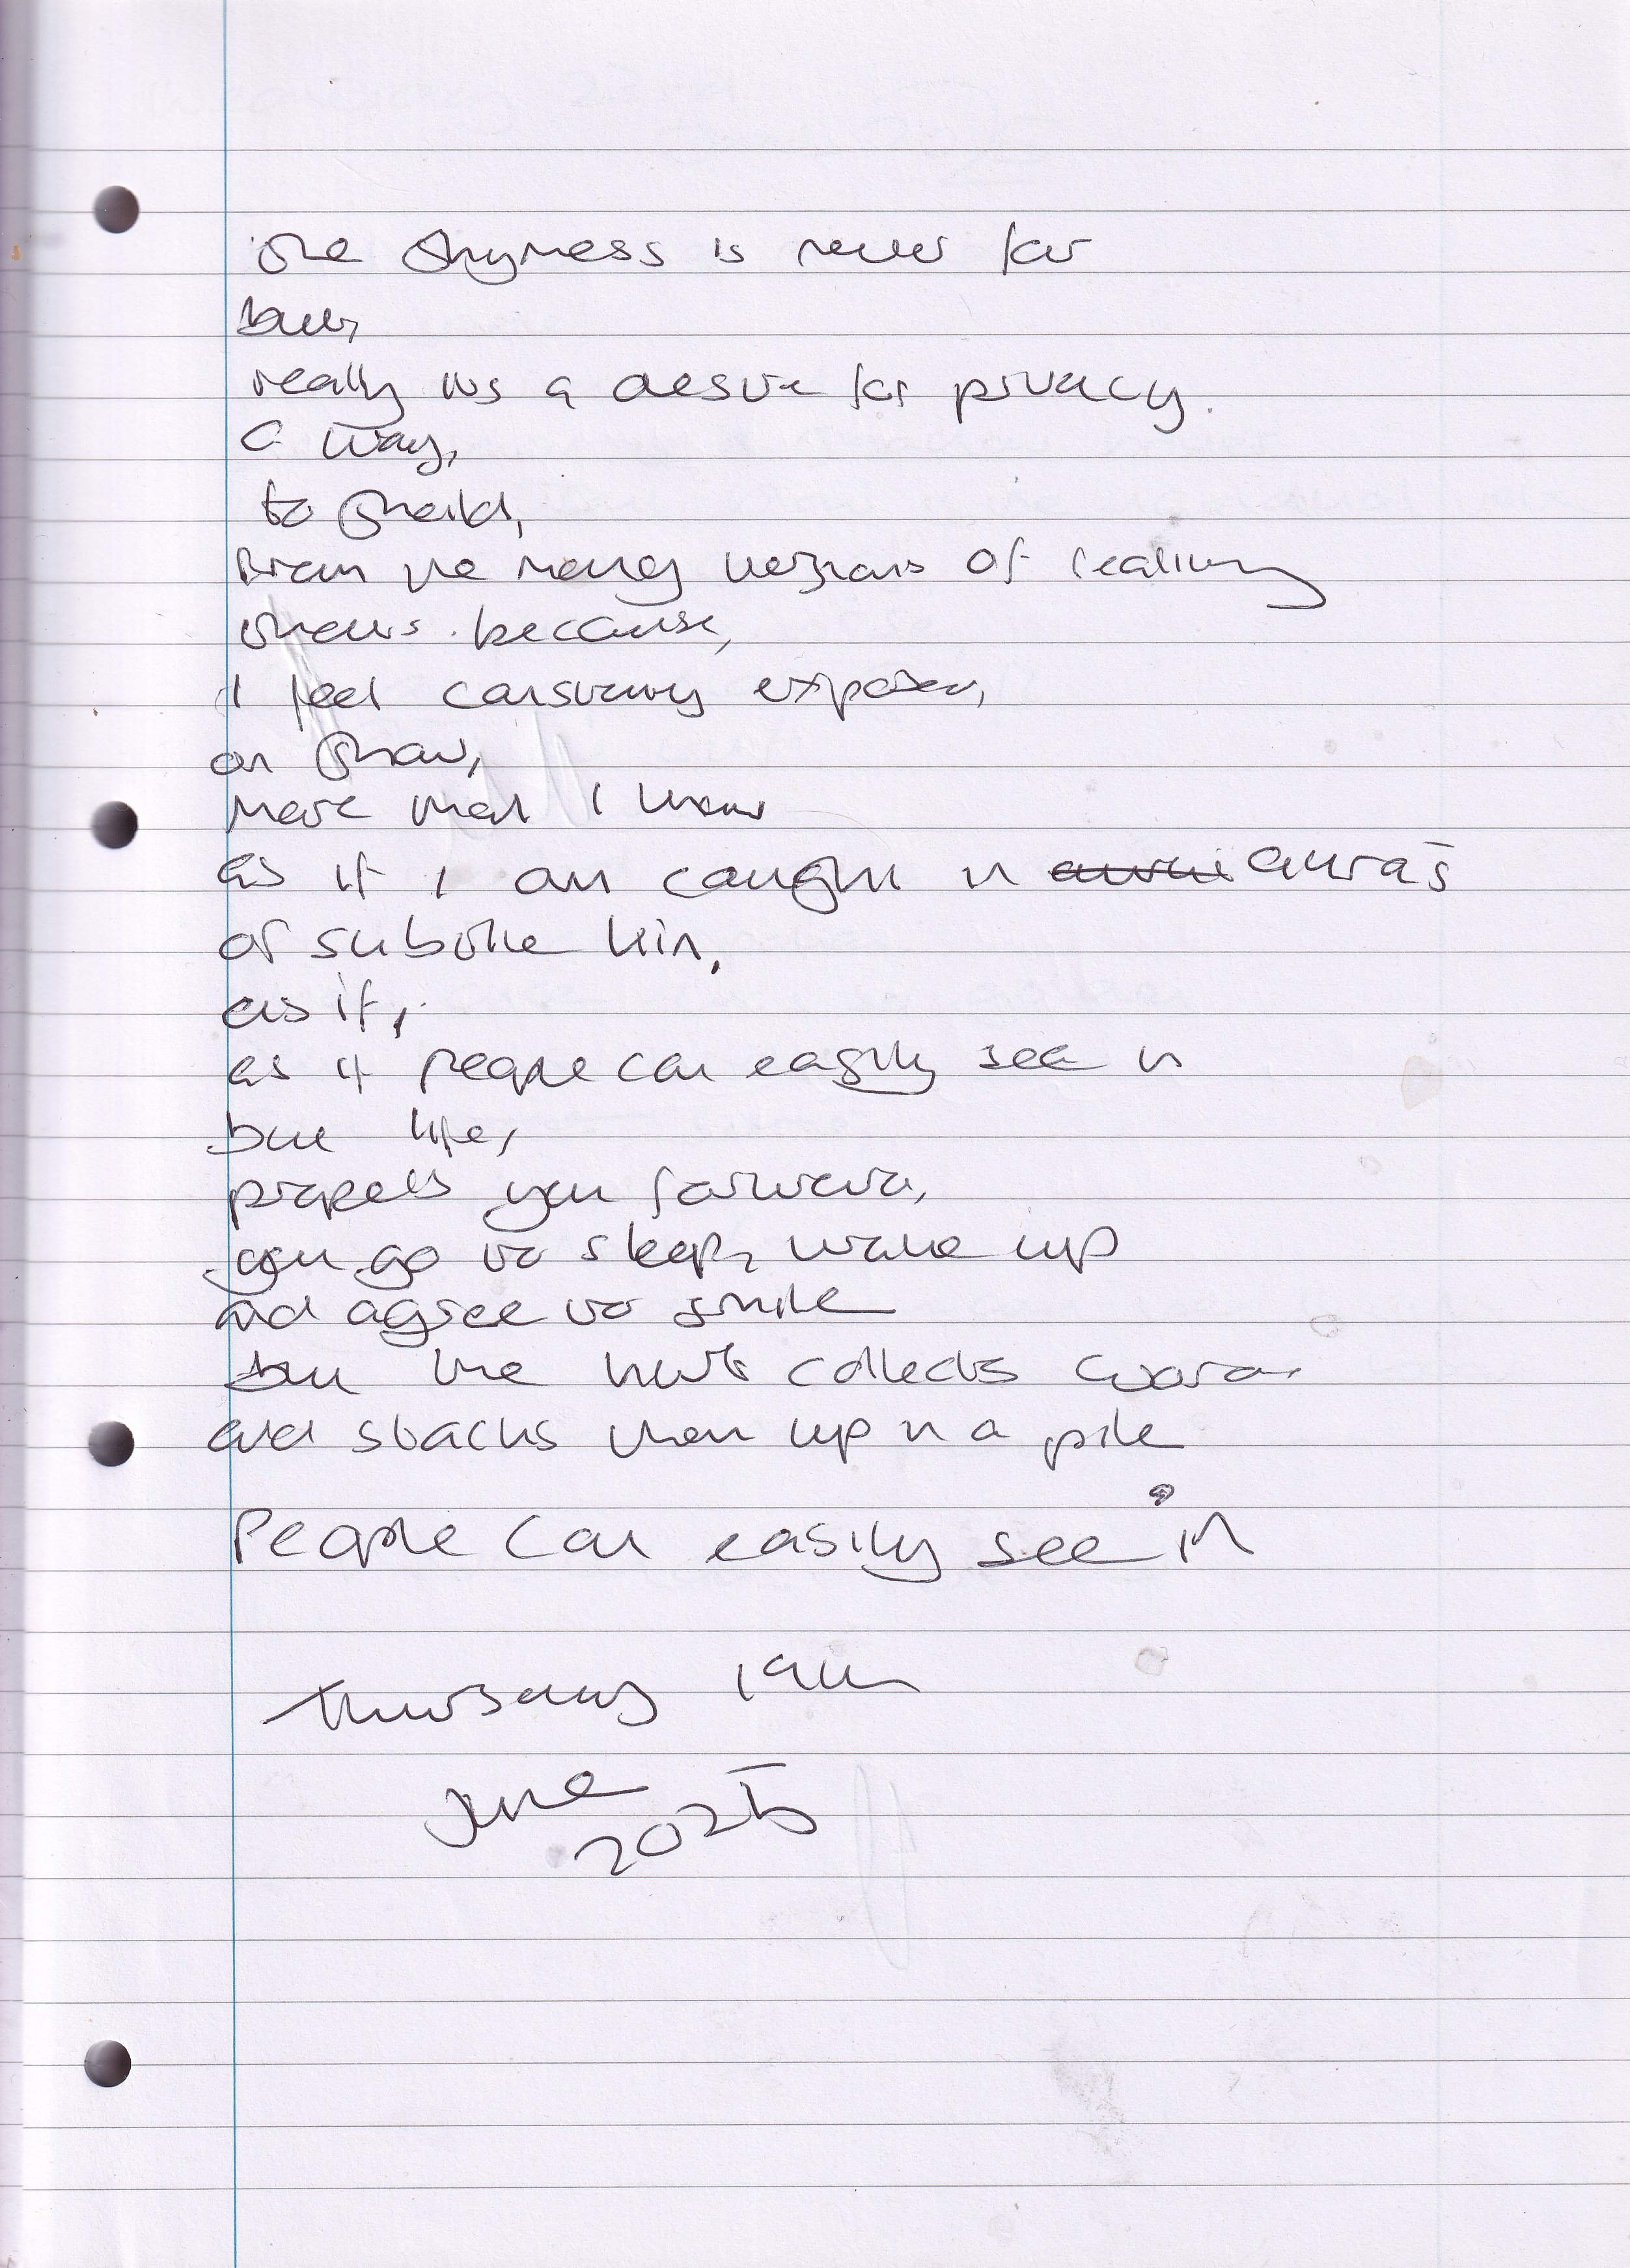 the shyness is never far
but,
really its a desire for privacy.
a way,
to sheild,
from the many versions of reality
others. because,
I feel constantly exposed,
on show,
more than I know
as if I am caught in auras
of subtle kin,
as if,
as if people can easily see in
but life,
propels you forward,
you go to sleep, wake up
and agree to smile
but the hurt collects
and stacks them up in a pile
People can easily see in
Thursday 19th
June
2025